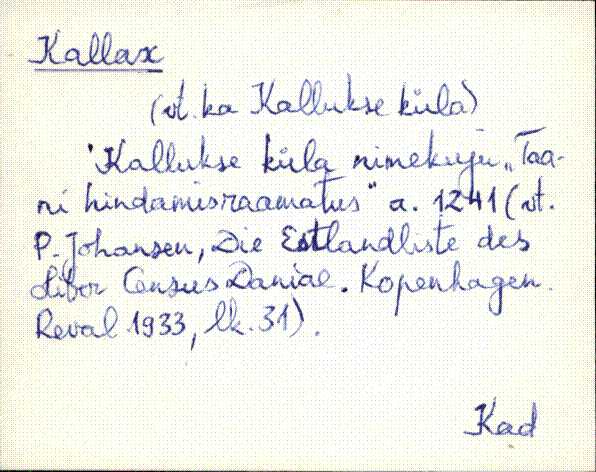 Kallax
(vt. ka Kallukse küla)
'Kallukse küla nimekuju „Taa-
ni hindamisraamatus" a. 1241 (vt.
P. Johansen, Die Estlandliste des
Liber Census Daniae. Kopenhagen.
Reval 1933, lk. 31).
Kad